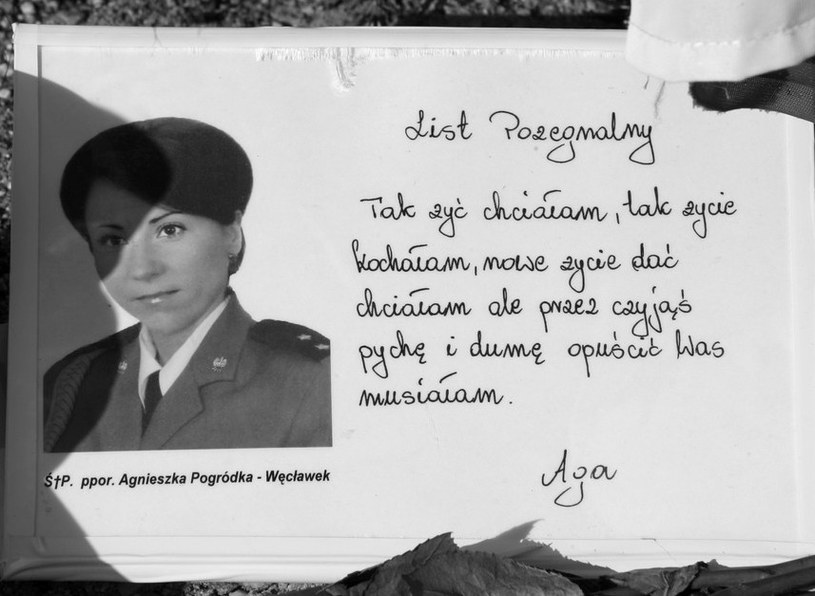 List Pożegnalny
Tak żyć chciałam, tak życie
kochałam, nowe życie dać
chciałam ale przez czyjąś
pychę i dumę opuścić Was
musiałam.
Aga
Ś†P. ppor. Agnieszka Pogródka - Węcławek